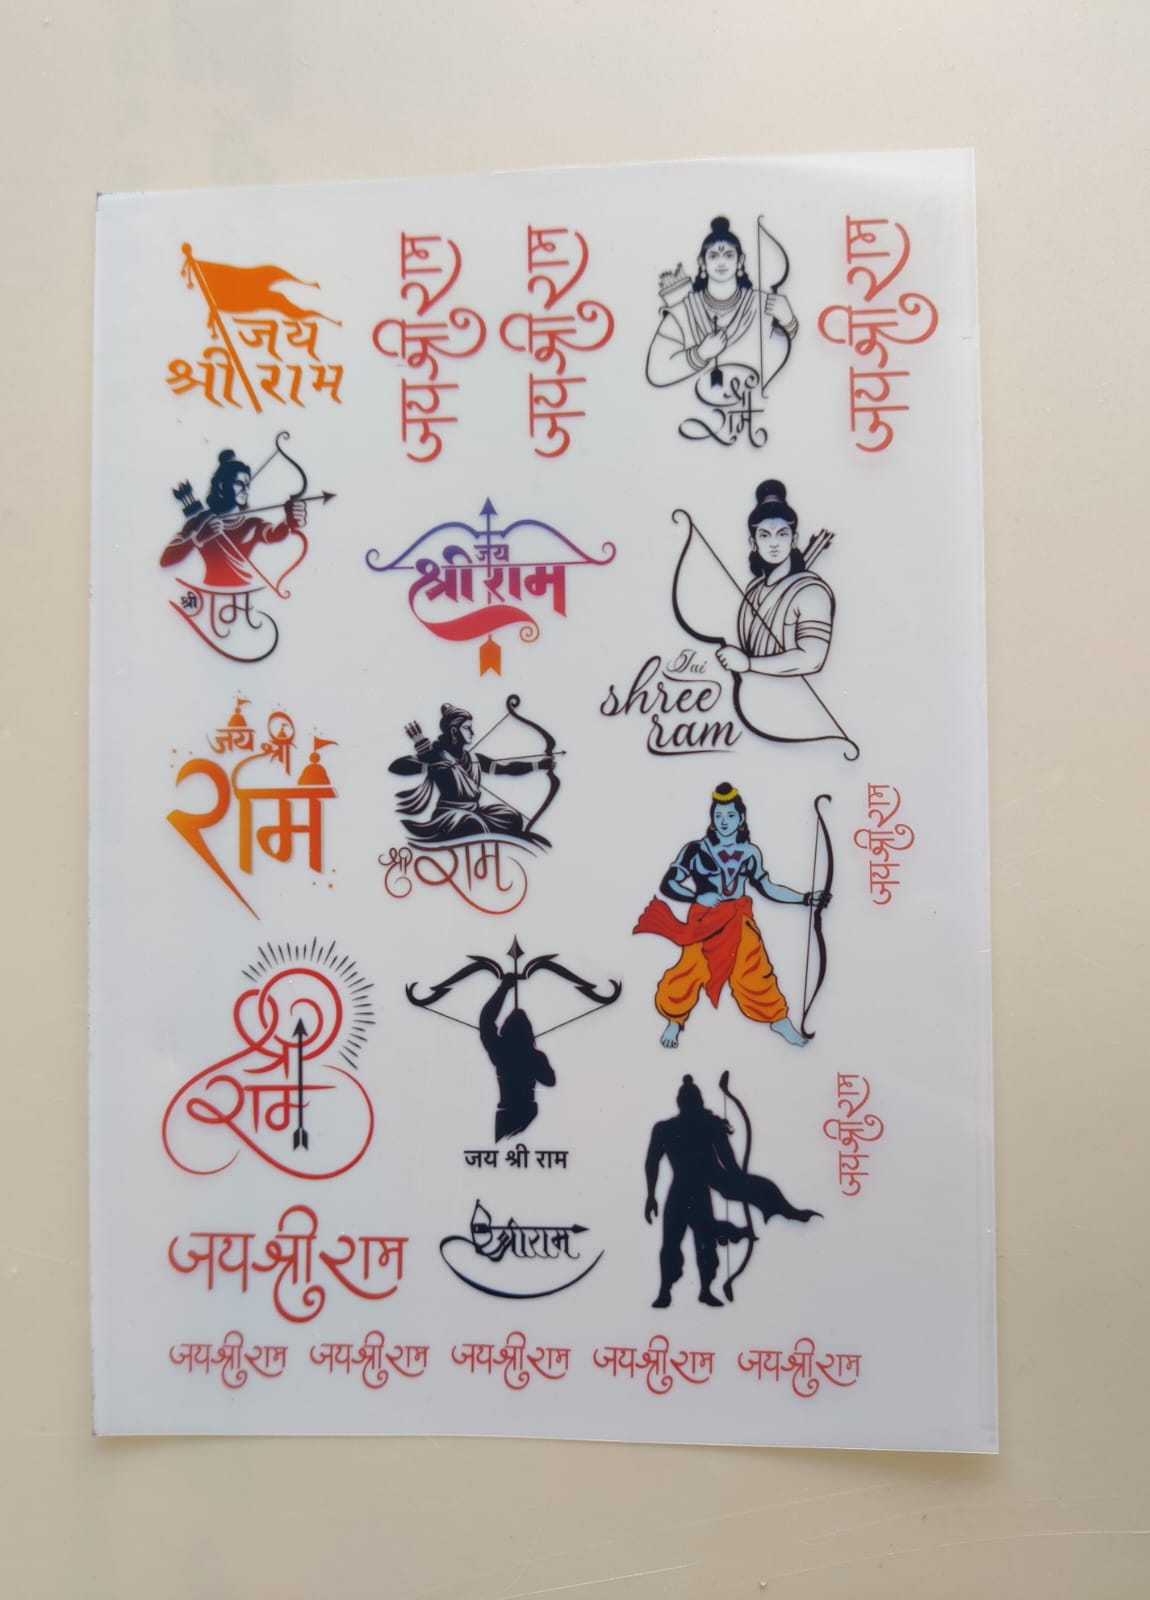 जय
श्री राम
जय श्री राम
जय श्री राम
श्री
राम
जय श्री राम
श्री राम
जय
श्री राम
Jai
shree
ram
जय श्री
राम
श्री राम
जय श्री राम
श्री
राम
जय श्री राम
जय श्री राम
जय श्री राम
श्री राम
जय श्री राम
जय श्री राम
जय श्री राम
जय श्री राम
जय श्री राम